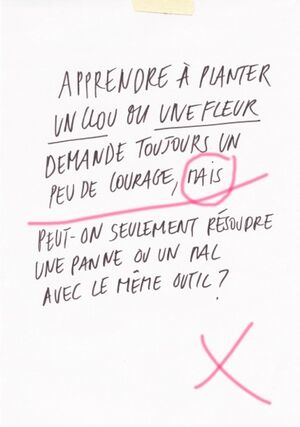 APPRENDRE À PLANTER
UN CLOU OU UNE FLEUR
DEMANDE TOUJOURS UN
PEU DE COURAGE, MAIS
PEUT-ON SEULEMENT RÉSOUDRE
UNE PANNE OU UN MAL
AVEC LE MÊME OUTIL ?